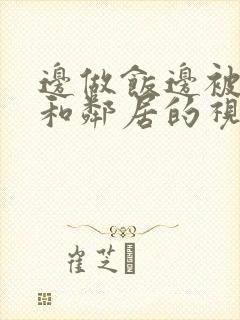 邊做飯邊被
和鄰居的視
崔芝